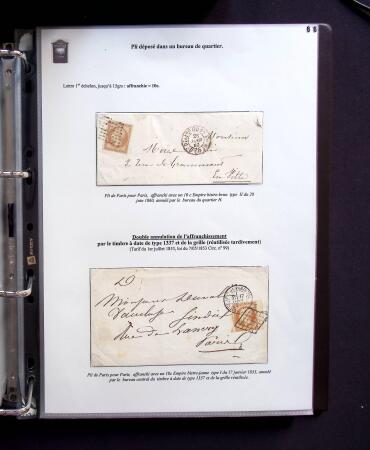 Pli déposé dans un bureau de quartier.
Lettre 1er échelon, jusqu'à 15grs : affranchie = 10c.
Monsieur
2 rue de Grammont
En Ville
Pli de Paris pour Paris, affranchi avec un 10 c Empire bistre-brun type II du 20
juin 1860, annulé par le bureau du quartier H.
Double annulation de l'affranchissement
par le timbre à date de type 1337 et de la grille (réutilisée tardivement)
(Tarif du 1er juillet 1853, loi du 7/05/1853 Circ. n° 99)
Monsieur
Rue de
Paris
Pli de Paris pour Paris, affranchi avec un 10c Empire bistre-jaune type I du 17 janvier 1855, annulé
par le bureau central du timbre à date de type 1337 et de la grille réutilisée.